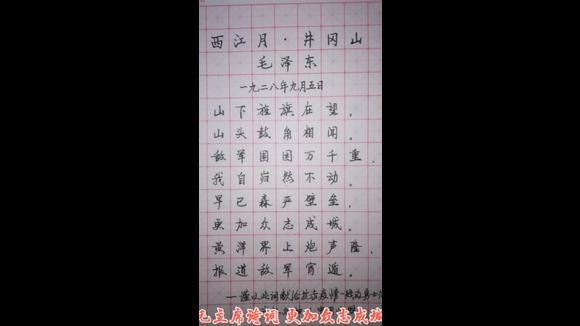 西江月·井冈山
毛泽东
一九二八年九月五日
山下旌旗在望,
山头鼓角相闻。
敌军围困万千重,
我自岿然不动。
早已森严壁垒,
更加众志成城。
黄洋界上炮声隆,
报道敌军宵遁。
——谨以此词献给抗击疫情一线的勇士们
毛主席诗词 更加众志成城